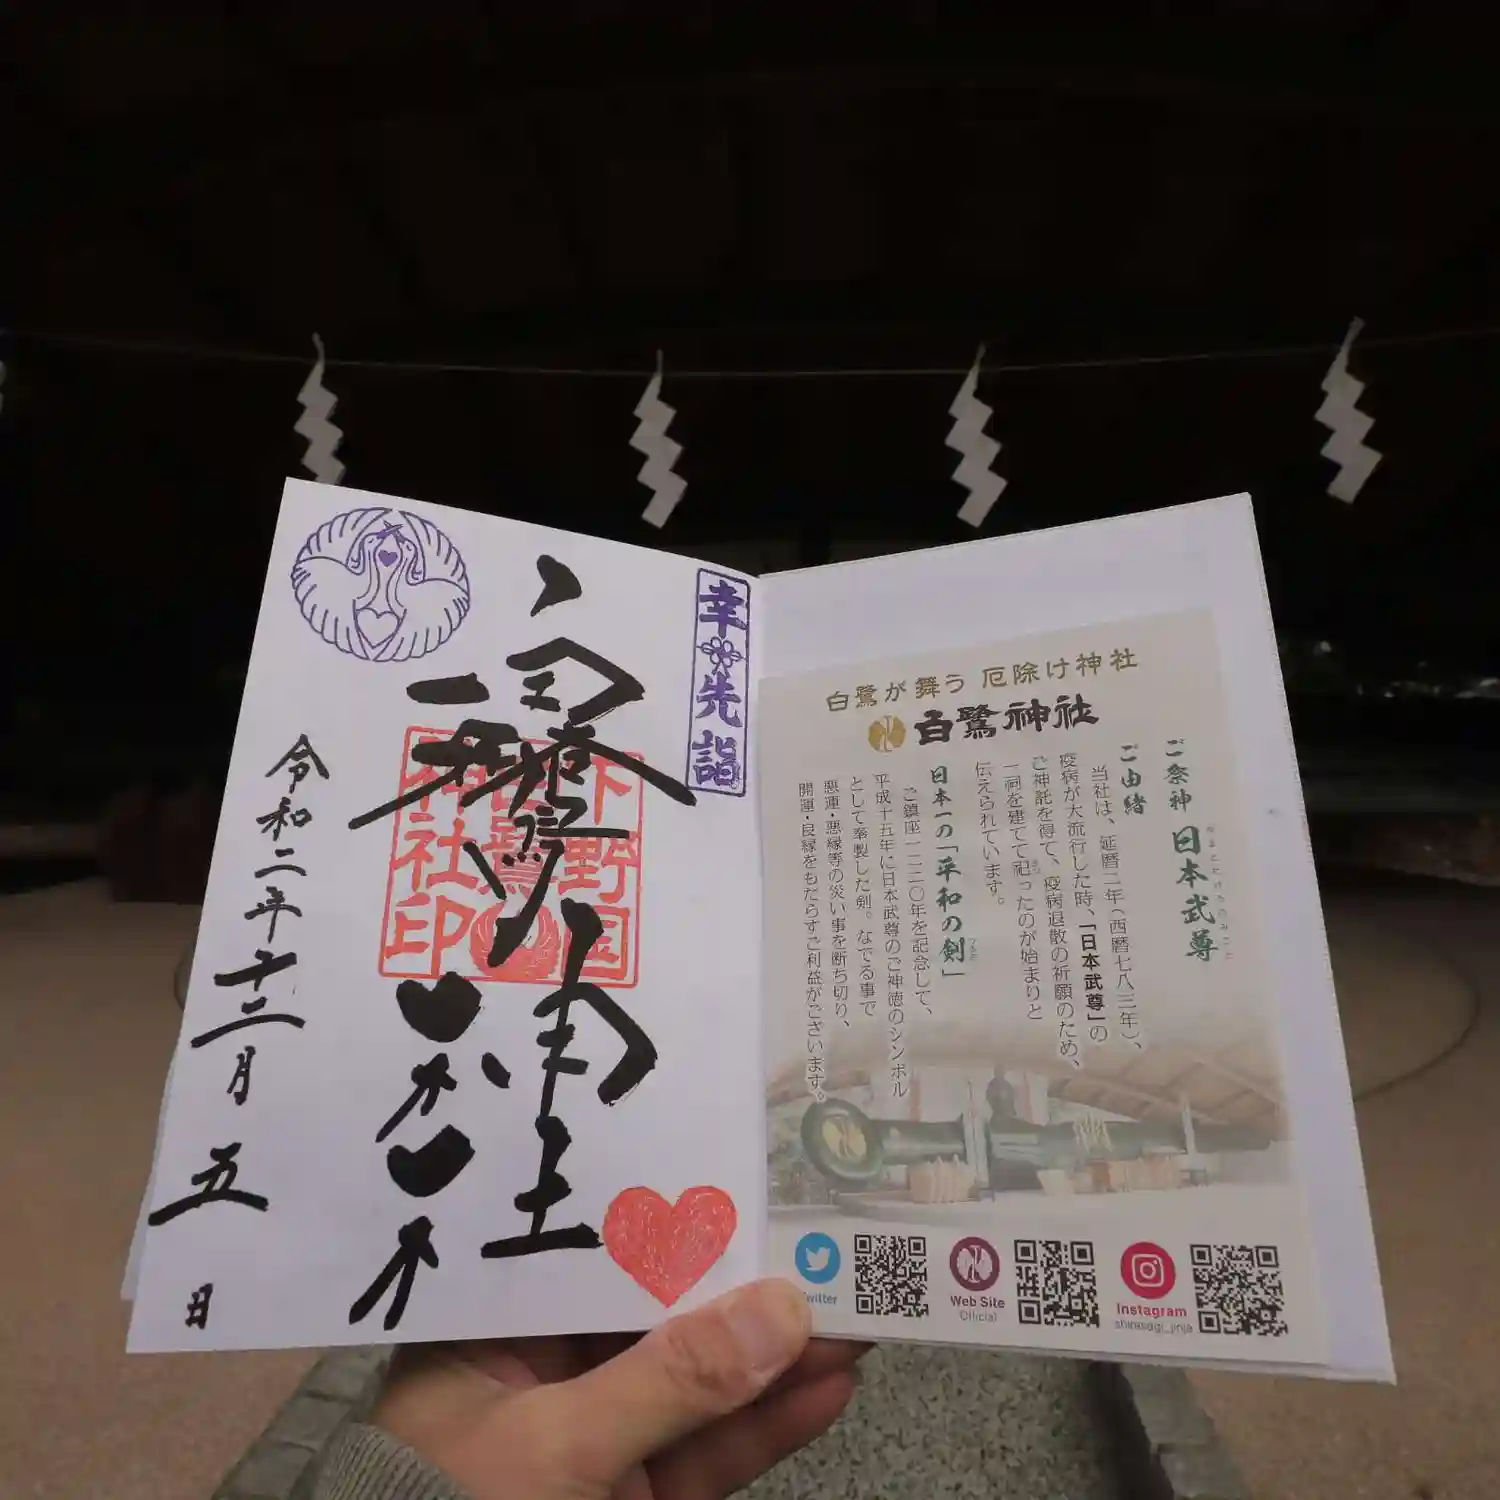 幸先詣
白鷺神社
下野国
白鷺
神社印
令和二年十二月五日
白鷺が舞う 厄除け神社
白鷺神社
ご祭神 日本武尊
やまとたけるのみこと
ご由緒
当社は、延暦二年(西暦七八三年)、
疫病が大流行した時、「日本武尊」の
ご神託を得て、疫病退散の祈願のため、
一祠を建てて祀ったのが始まりと
伝えられています。
日本一の「平和の剣」
つるぎ
ご鎮座一二二〇年を記念して、
平成十五年に日本武尊のご神徳のシンボル
として奉製した剣。なでる事で
悪運・悪縁等の災い事を断ち切り、
開運・良縁をもたらすご利益がございます。
Twitter
Web Site
Official
Instagram
shirasagi_jinja